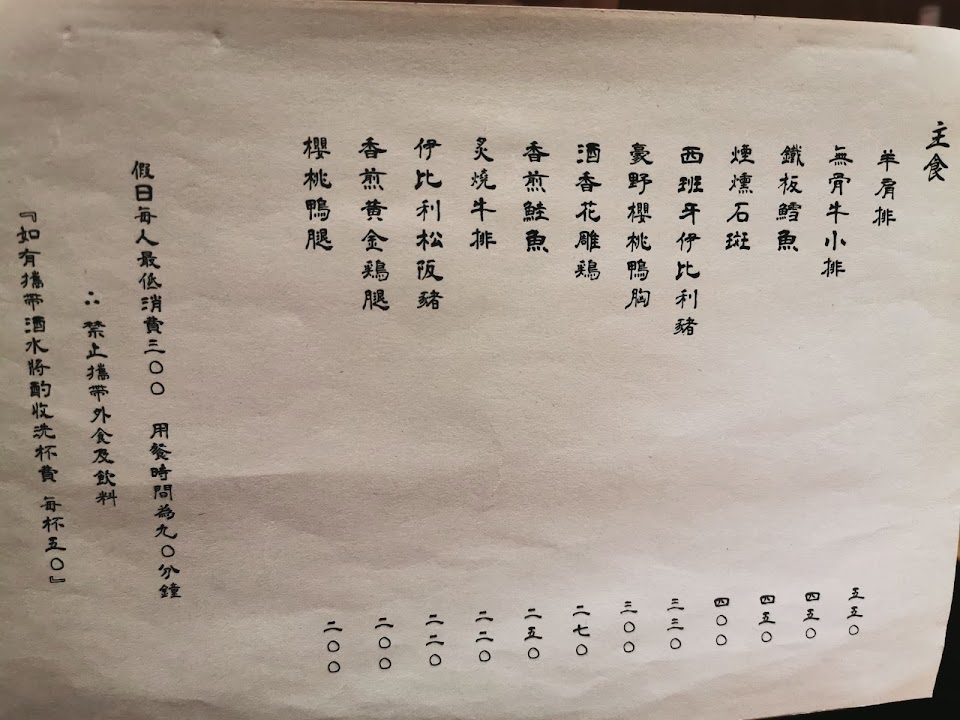 主食
羊肩排 五五〇
無骨牛小排 四五〇
鐵板鱈魚 四五〇
煙燻石斑 四〇〇
西班牙伊比利豬 三三〇
豪野櫻桃鴨胸 三〇〇
酒香花雕鷄 二七〇
香煎鮭魚 二五〇
炙燒牛排 二二〇
伊比利松阪豬 二二〇
香煎黃金鷄腿 二〇〇
櫻桃鴨腿 二〇〇
假日每人最低消費三〇〇 用餐時間為九〇分鐘
∴禁止攜帶外食及飲料
『如有攜帶酒水將酌收洗杯費 每杯五〇』